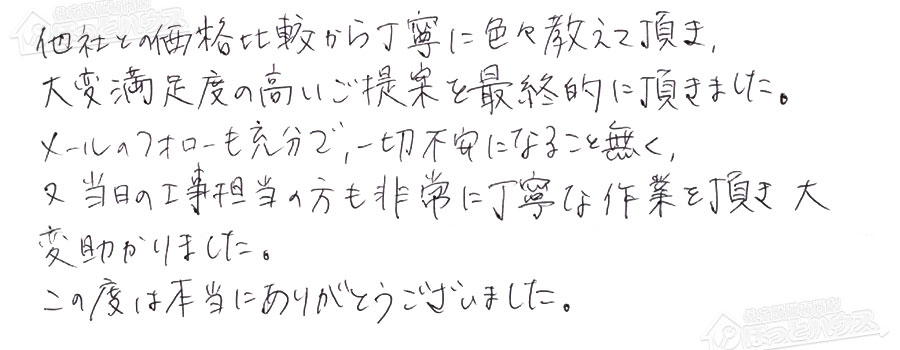 他社との価格比較から丁寧に色々教えて頂き,
大変満足度の高いご提案を最終的に頂きました。
メールのフォローも充分で,一切不安になること無く,
又当日の工事担当の方も非常に丁寧な作業を頂き 大
変助かりました。
この度は本当にありがとうございました。
ほっとハウス
ほっとハウス